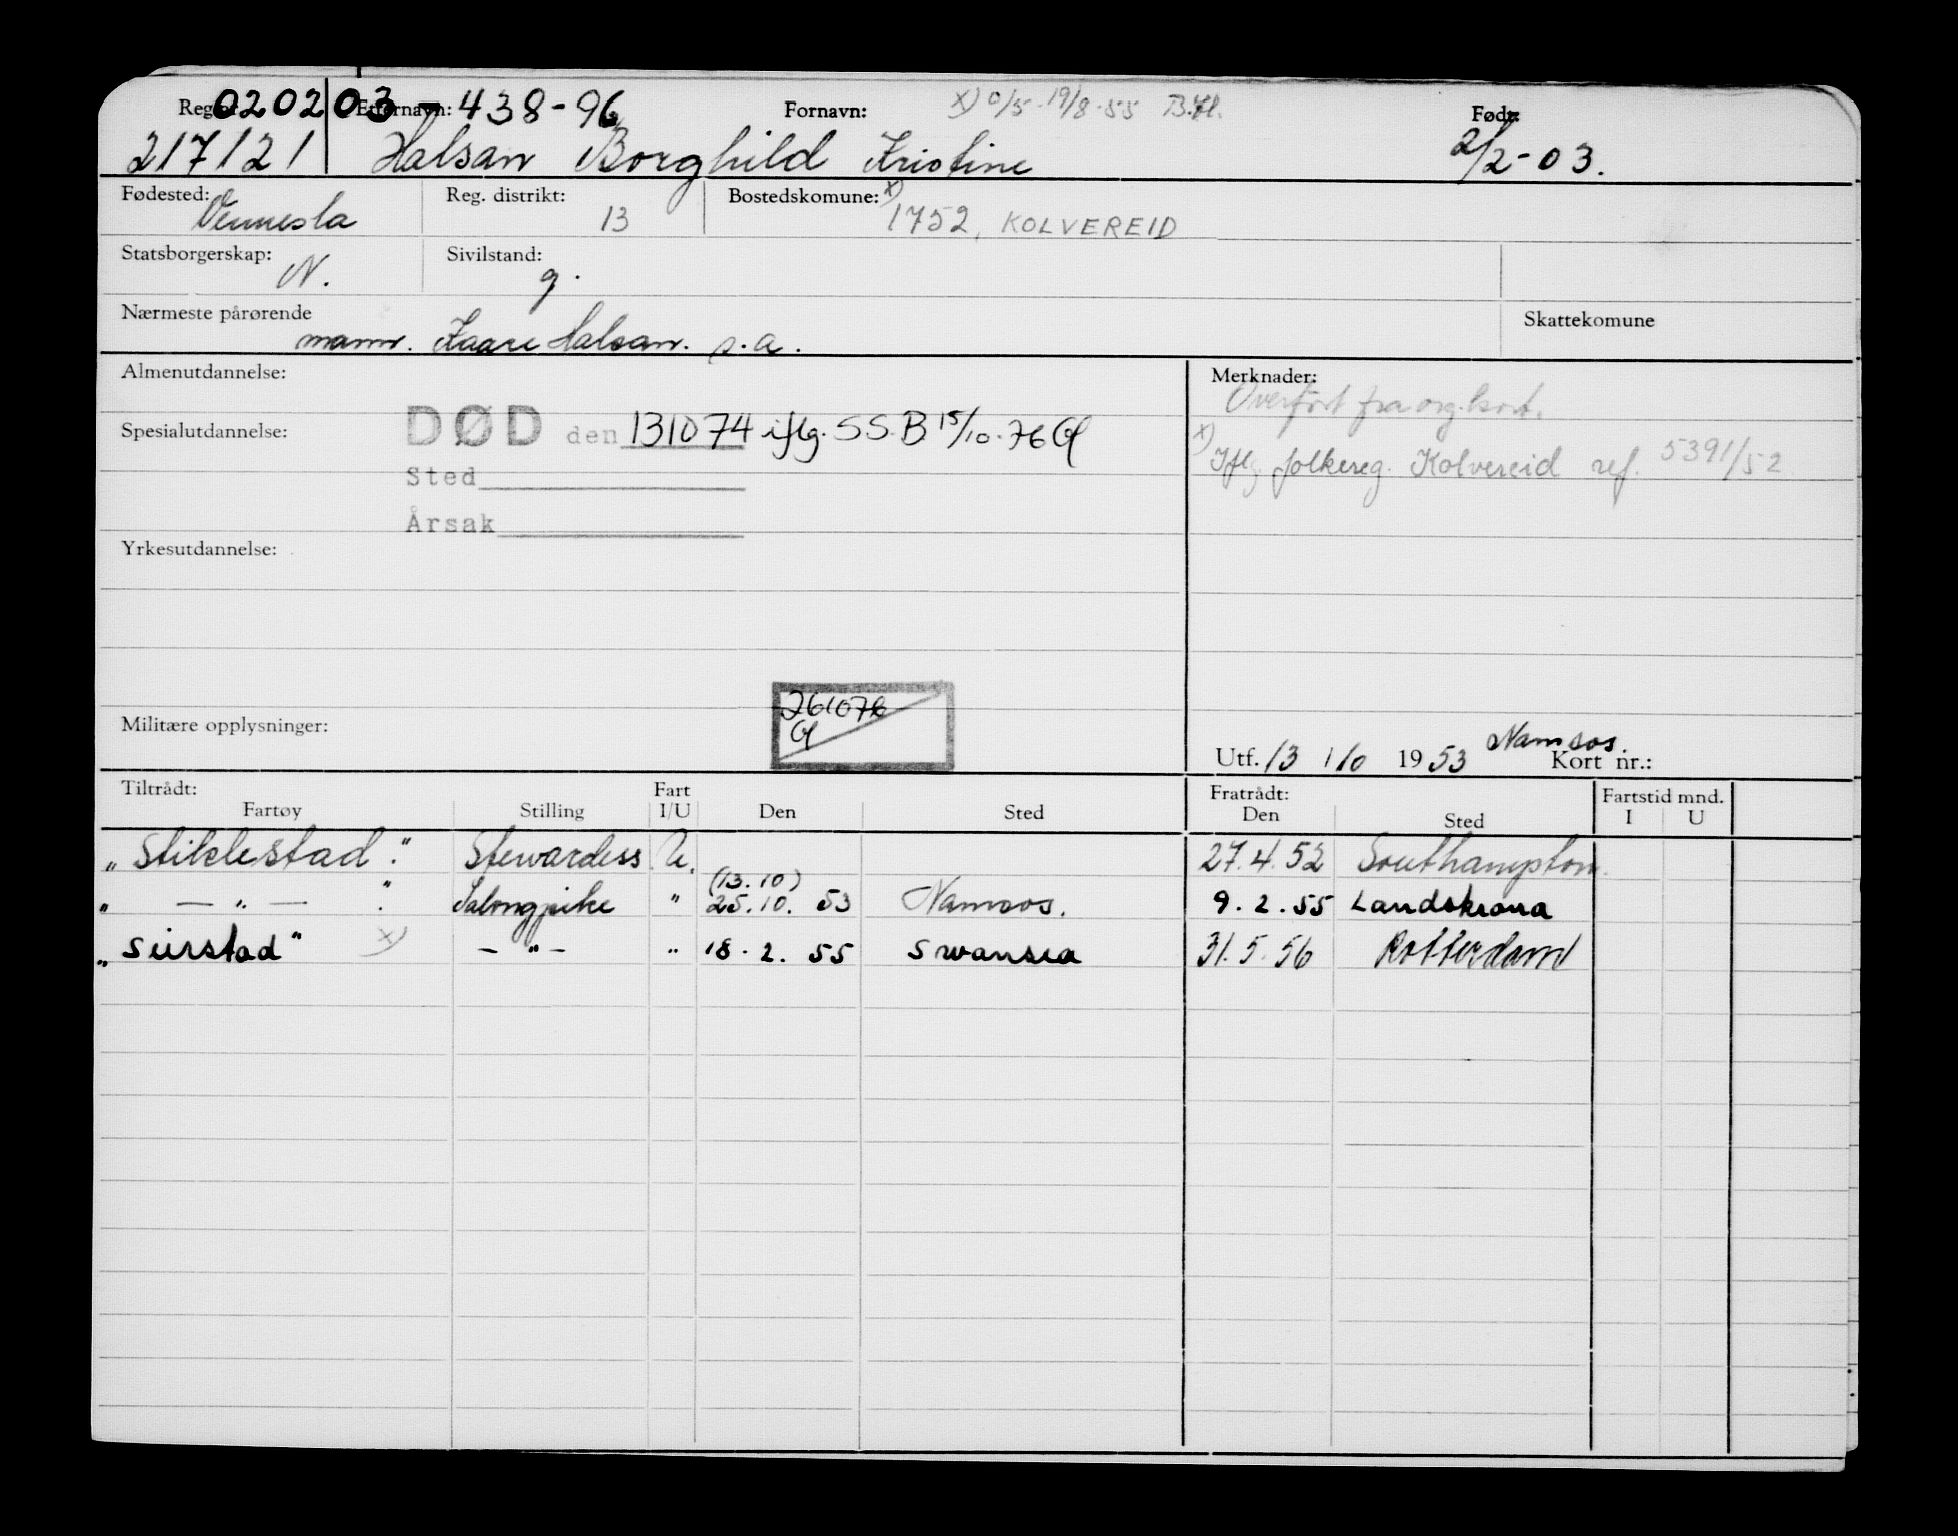 Reg. nr. 020203-438-96 Etternavn: Fornavn: x) 0/5 - 19/8-55 Født:
217121 Halsan Borghild Kristine 2/2-03.
Fødested: Vennesla Reg. distrikt: 13 Bostedskomune: x) 1752, KOLVEREID
Statsborgerskap: N. Sivilstand: g.
Nærmeste pårørende mann. Kaare Halsan. s.a. Skattekomune
Almenutdannelse: Merknader: Overført fra org.kort.
Spesialutdannelse: DØD den 131074 iflg. SSB 15/10-76
x) Iflg folkereg. Kolvereid ref. 5391/52
Sted
Årsak
Yrkesutdannelse:
261076
Militære opplysninger:
Utf. 13/10 1953 Namsos. Kort nr.:
Tiltrådt: Fart Fratrådt: Fartstid mnd.
Fartøy Stilling I/U Den Sted Den Sted I U
"Stiklestad." Stewardess U. 27.4.52 Southampton.
" — " — " Salongpike " (13.10) 25.10. 53 Namsos. 9.2.55 Landskrona
"Seirstad" x) - " - " 18.2. 55 Swansea 31.5.56 Rotterdam